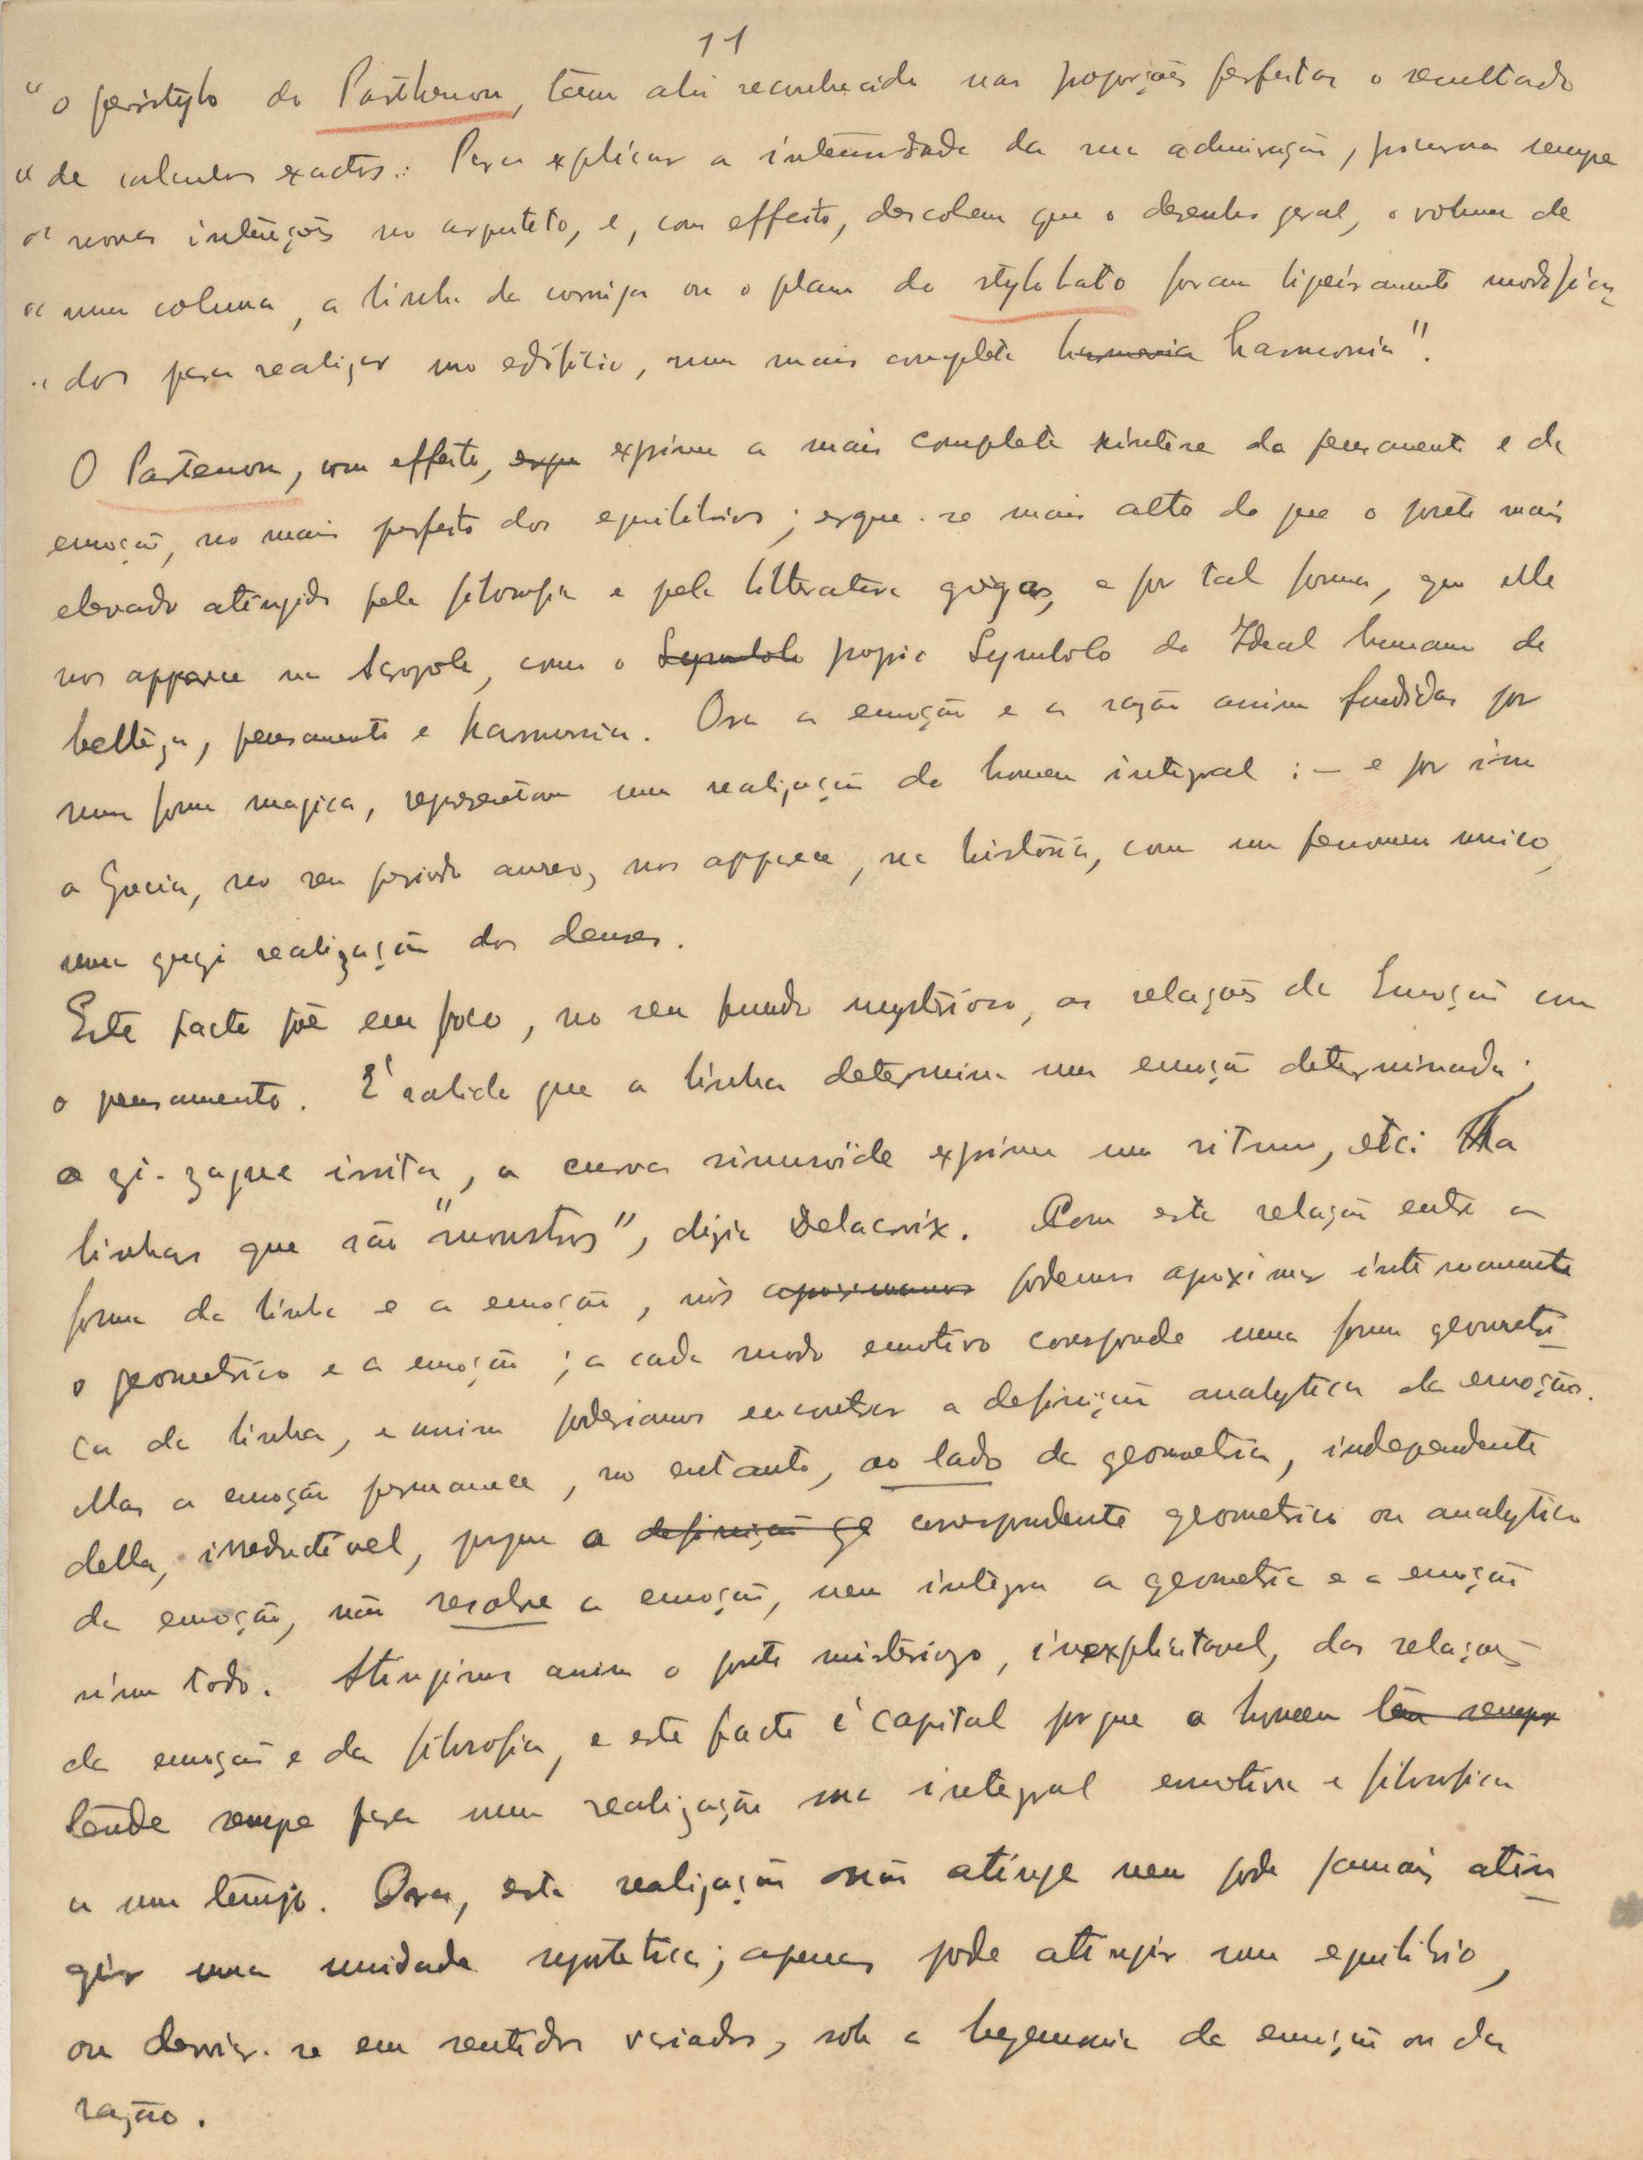 11
"o peristylo do Parthenon, têem ahi reconhecido nas proporções perfeitas o resultado
"de calculos exactos. Para explicar a intensidade da sua admiração, procurava sempre
"novas intenções no arquiteto, e, com effeito, descobem que o desenho geral, o volume de
"uma coluna, a linha da cornija ou o plano do stylobato foram ligeiramente modifica
"dos para realizar no edifício, uma mais completa harmonia harmonia".
O Partenon, com effeito, expr exprime a mais completa sintese do pensamento e da
emoção, no mais perfeito dos equilibrios; ergue-se mais alto do que o ponto mais
elevado atingido pela filosofia e pela litteratura gregas, e por tal forma, que elle
nos apparece na Acropole, como o Symbolo proprio Symbolo do Ideal humano de
belleza, pensamento e harmonia. Ora a emoção e a razão assim fundidas por
uma forma magica, representam uma realização do homem integral : – e por isso
a Grecia, no seu periodo aureo, nos apparece, na história, como um fenomeno unico,
uma quasi realização dos deuses.
Este facto põe em foco, no seu fundo mysterioso, as relações da Emoção com
o pensamento. É sabido que a linha determina uma emoção determinada;
o zi-zague irrita, a curva sinusoide exprime um ritmo, etc: Ha
linhas que são "monstros", dizia Delacroix. Com esta relação entre a
forma da linha e a emoção, nós aproximamos podemos aproximar internamente
o geometrico e a emoção; a cada modo emotivo corresponde uma forma geometri
ca da linha, e assim poderiamos encontrar a definição analytica da emoção.
Mas a emoção permanece, no entanto, ao lado da geometria, independente
della, irreductivel, porque a definição ge correspondente geometrico ou analytico
da emoção, não resolve a emoção, nem integra a geometria e a emoção
n'um todo. Atingimos assim o ponto misterioso, inexplicavel, das relações
da emoção e da filosofia, e este facto é capital porque o homem tem sempre
tende sempre para uma realização sua integral emotiva e filosofica
a um tempo. Ora, esta realização não atinge nem pode jamais atin
gir uma unidade syntetica; apenas pode atingir um equilibrio,
ou desviar-se em sentidos variados, sob a hegemonia da emoção ou da
razão.